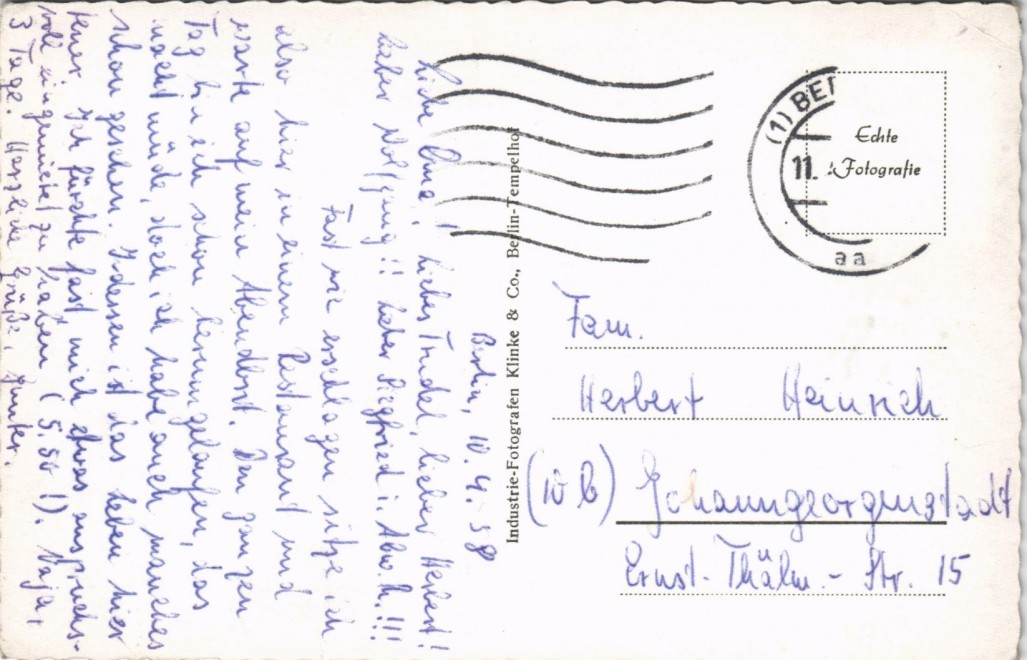 Berlin, 10.4.58
Liebe Oma, liebe Trudel, lieber Herbert!
lieber Wolfgang!! lieber Siegfried i. Abw. h.!!!
Fast wie erschlagen sitze ich
also hier in einem Restaurant und
warte auf mein Abendbrot. Den ganzen
Tag bin ich schon herumgelaufen, das
macht müde, doch ich habe auch manches
schon gesehen. Indessen ist das Leben hier
teuer. Ich fürchte fast mich etwas anspruchs-
voll eingemietet zu haben (5.50!). Naja,
3 Tage. Herzliche Grüße, Gunter.
Industrie-Fotografen Klinke & Co., Berlin-Tempelhof
(1) BER
11.
aa
Echte
Fotografie
Fam.
Herbert Heinrich
(10b) Johanngeorgenstadt
Ernst-Thälm.-Str. 15